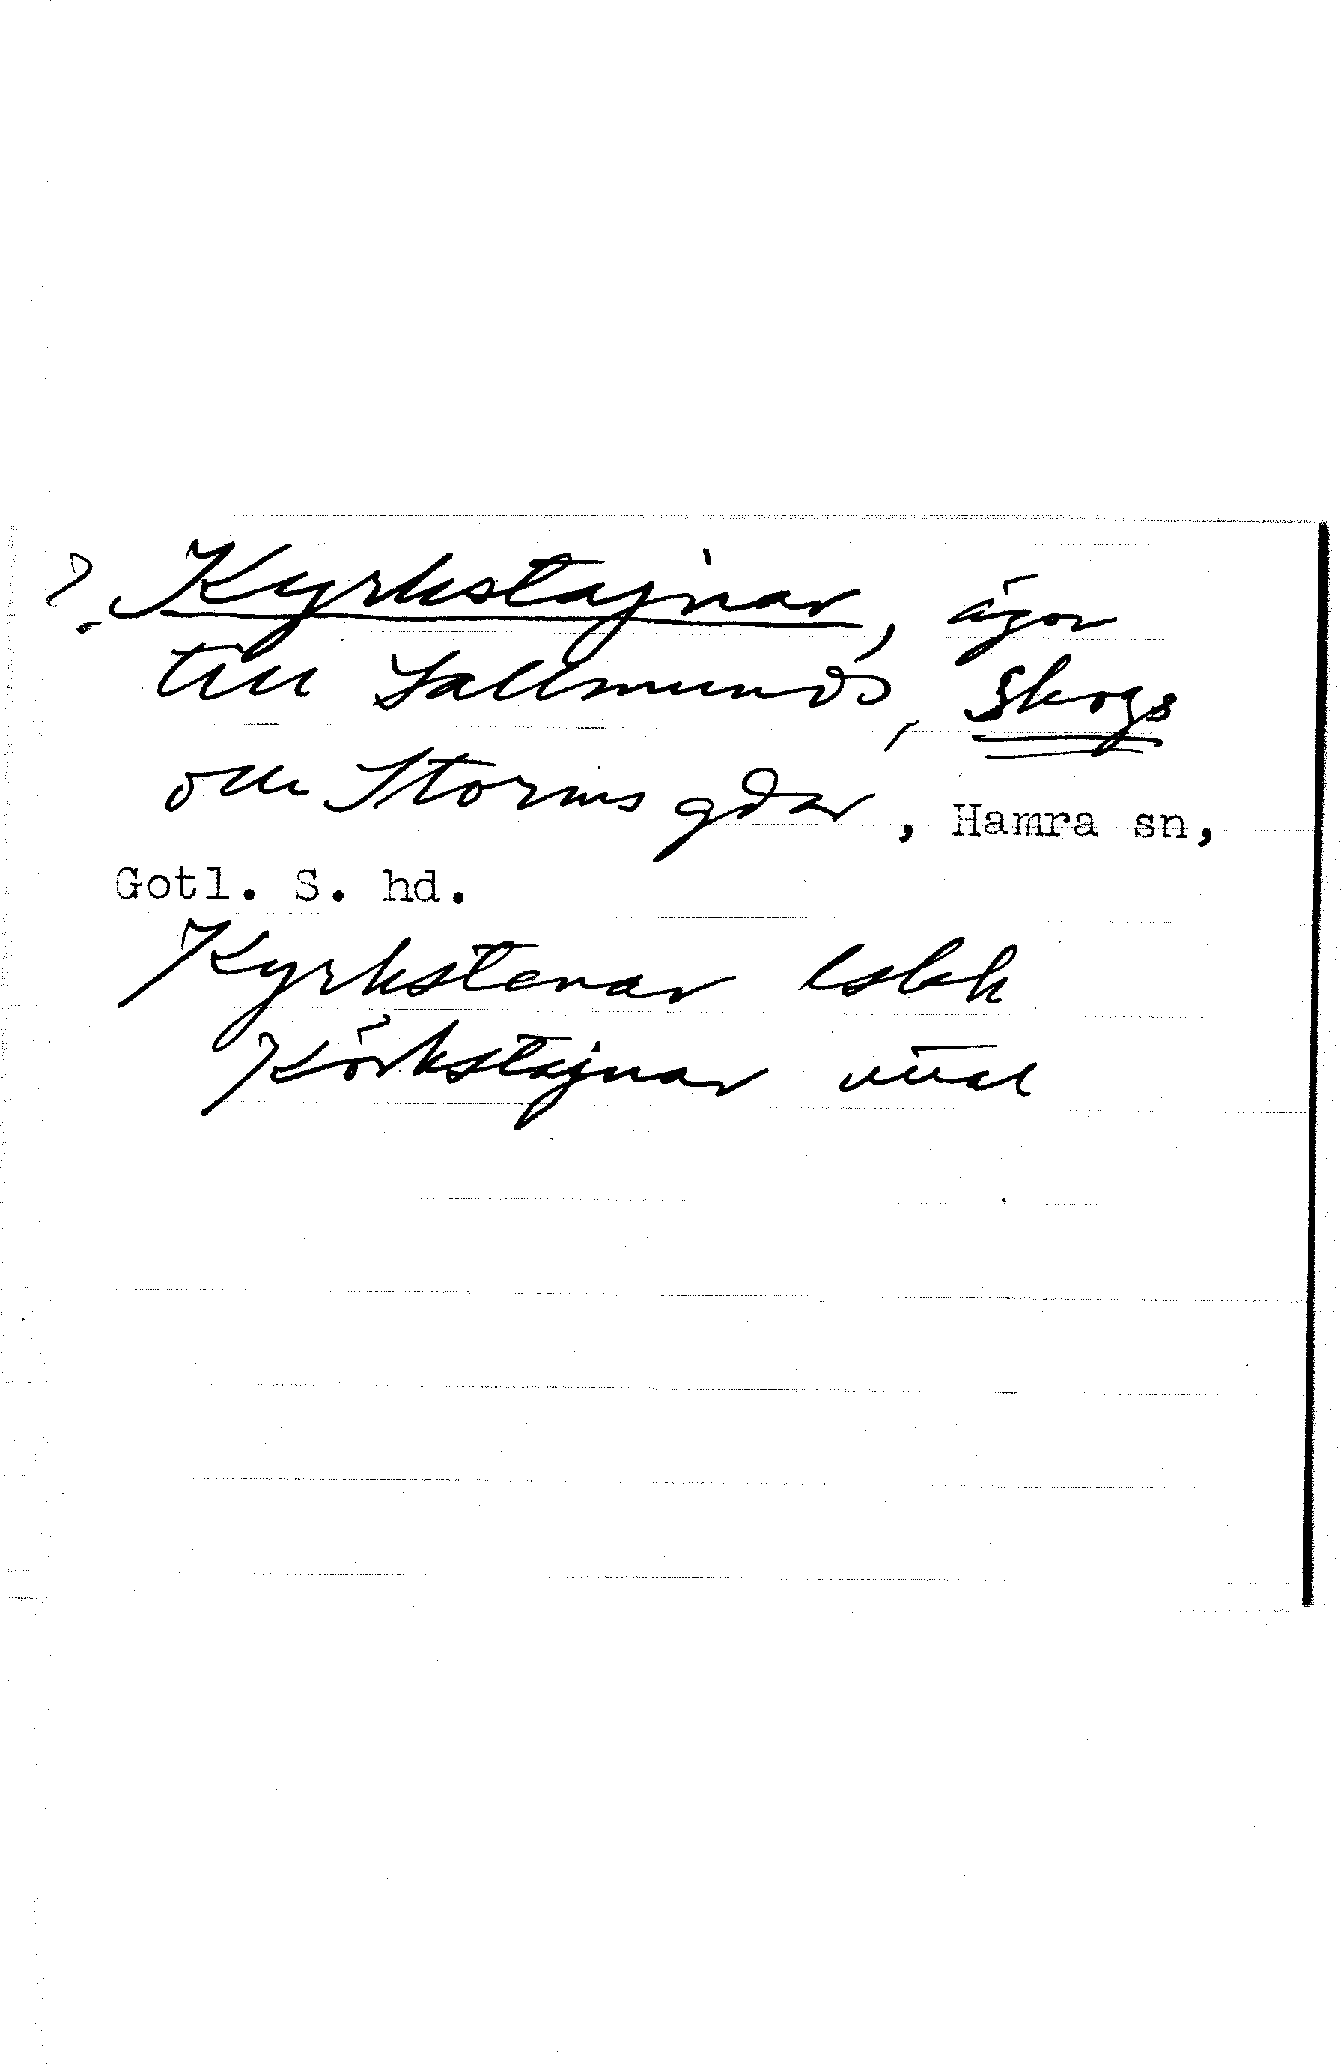 ? Kyrkstajnar, ägor
till Sallmunds, Skogs
och Storms gdar, Hamra sn,
Gotl. S. hd.
Kyrkstenar
Körkstajnar uttal